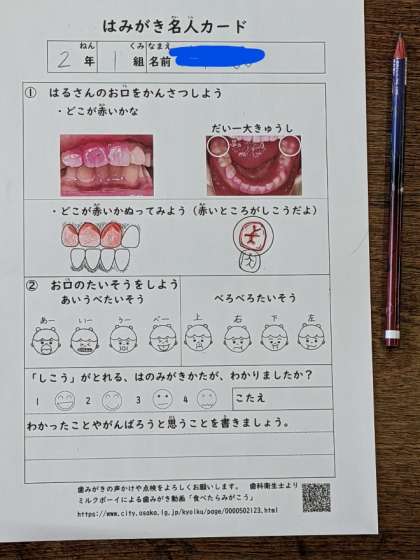 はみがき名人カード
2年 1組 名前
ねん くみ なまえ
① はるさんのお口をかんさつしよう
・どこが赤いかな
だい一大きゅうし
・どこが赤いかぬってみよう（赤いところがしこうだよ）
② お口のたいそうをしよう
あいうべたいそう
べろべろたいそう
あー いー うー べー 上 右 下 左
「しこう」がとれる、はのみがきかたが、わかりましたか？
1 2 3 4 こたえ
わかったことやがんばろうと思うことを書きましょう。
歯みがきの声かけや点検をよろしくお願いします。 歯科衛生士より
ミルクボーイによる歯みがき動画「食べたらみがこう」
https://www.city.osaka.lg.jp/kyoiku/page/0000502123.html